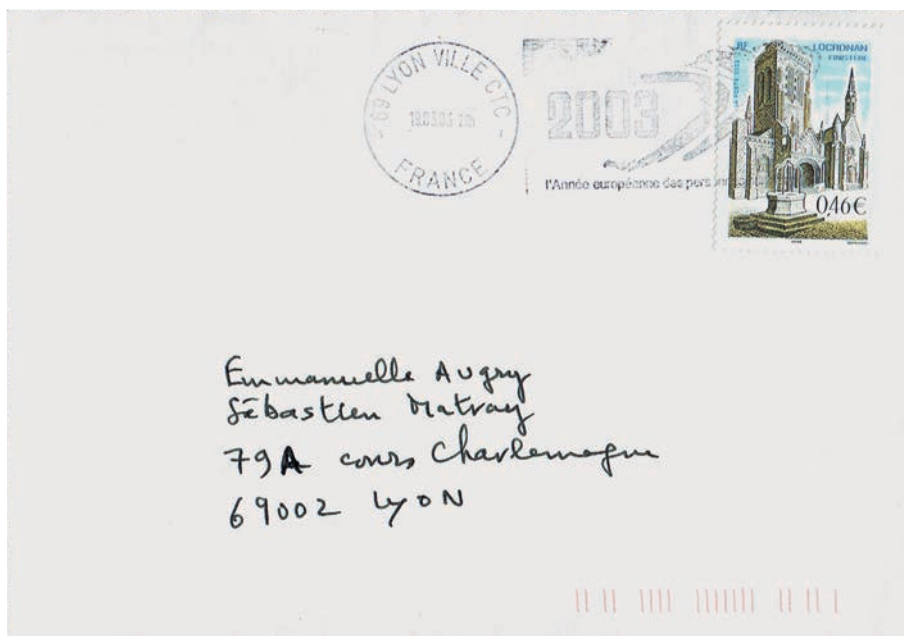 69 LYON VILLE CTC
FRANCE
2003
l'Année européenne des pers
RF
LOCRONAN
FINISTÈRE
LA POSTE 2002
0,46€
Emmanuelle Augry
Sébastien Matray
79A cours Charlemagne
69002 Lyon